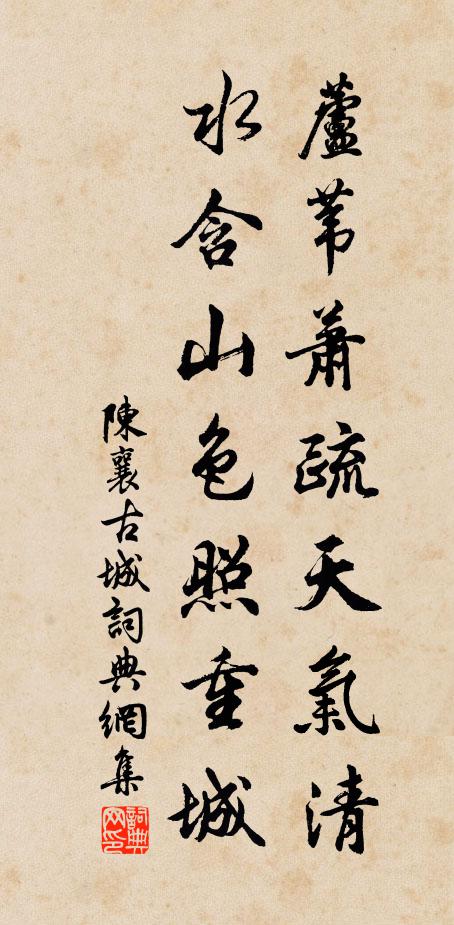 蘆葦蕭疏天氣清
水含山色照重城
陳襄古城詞典網集
詞典網印